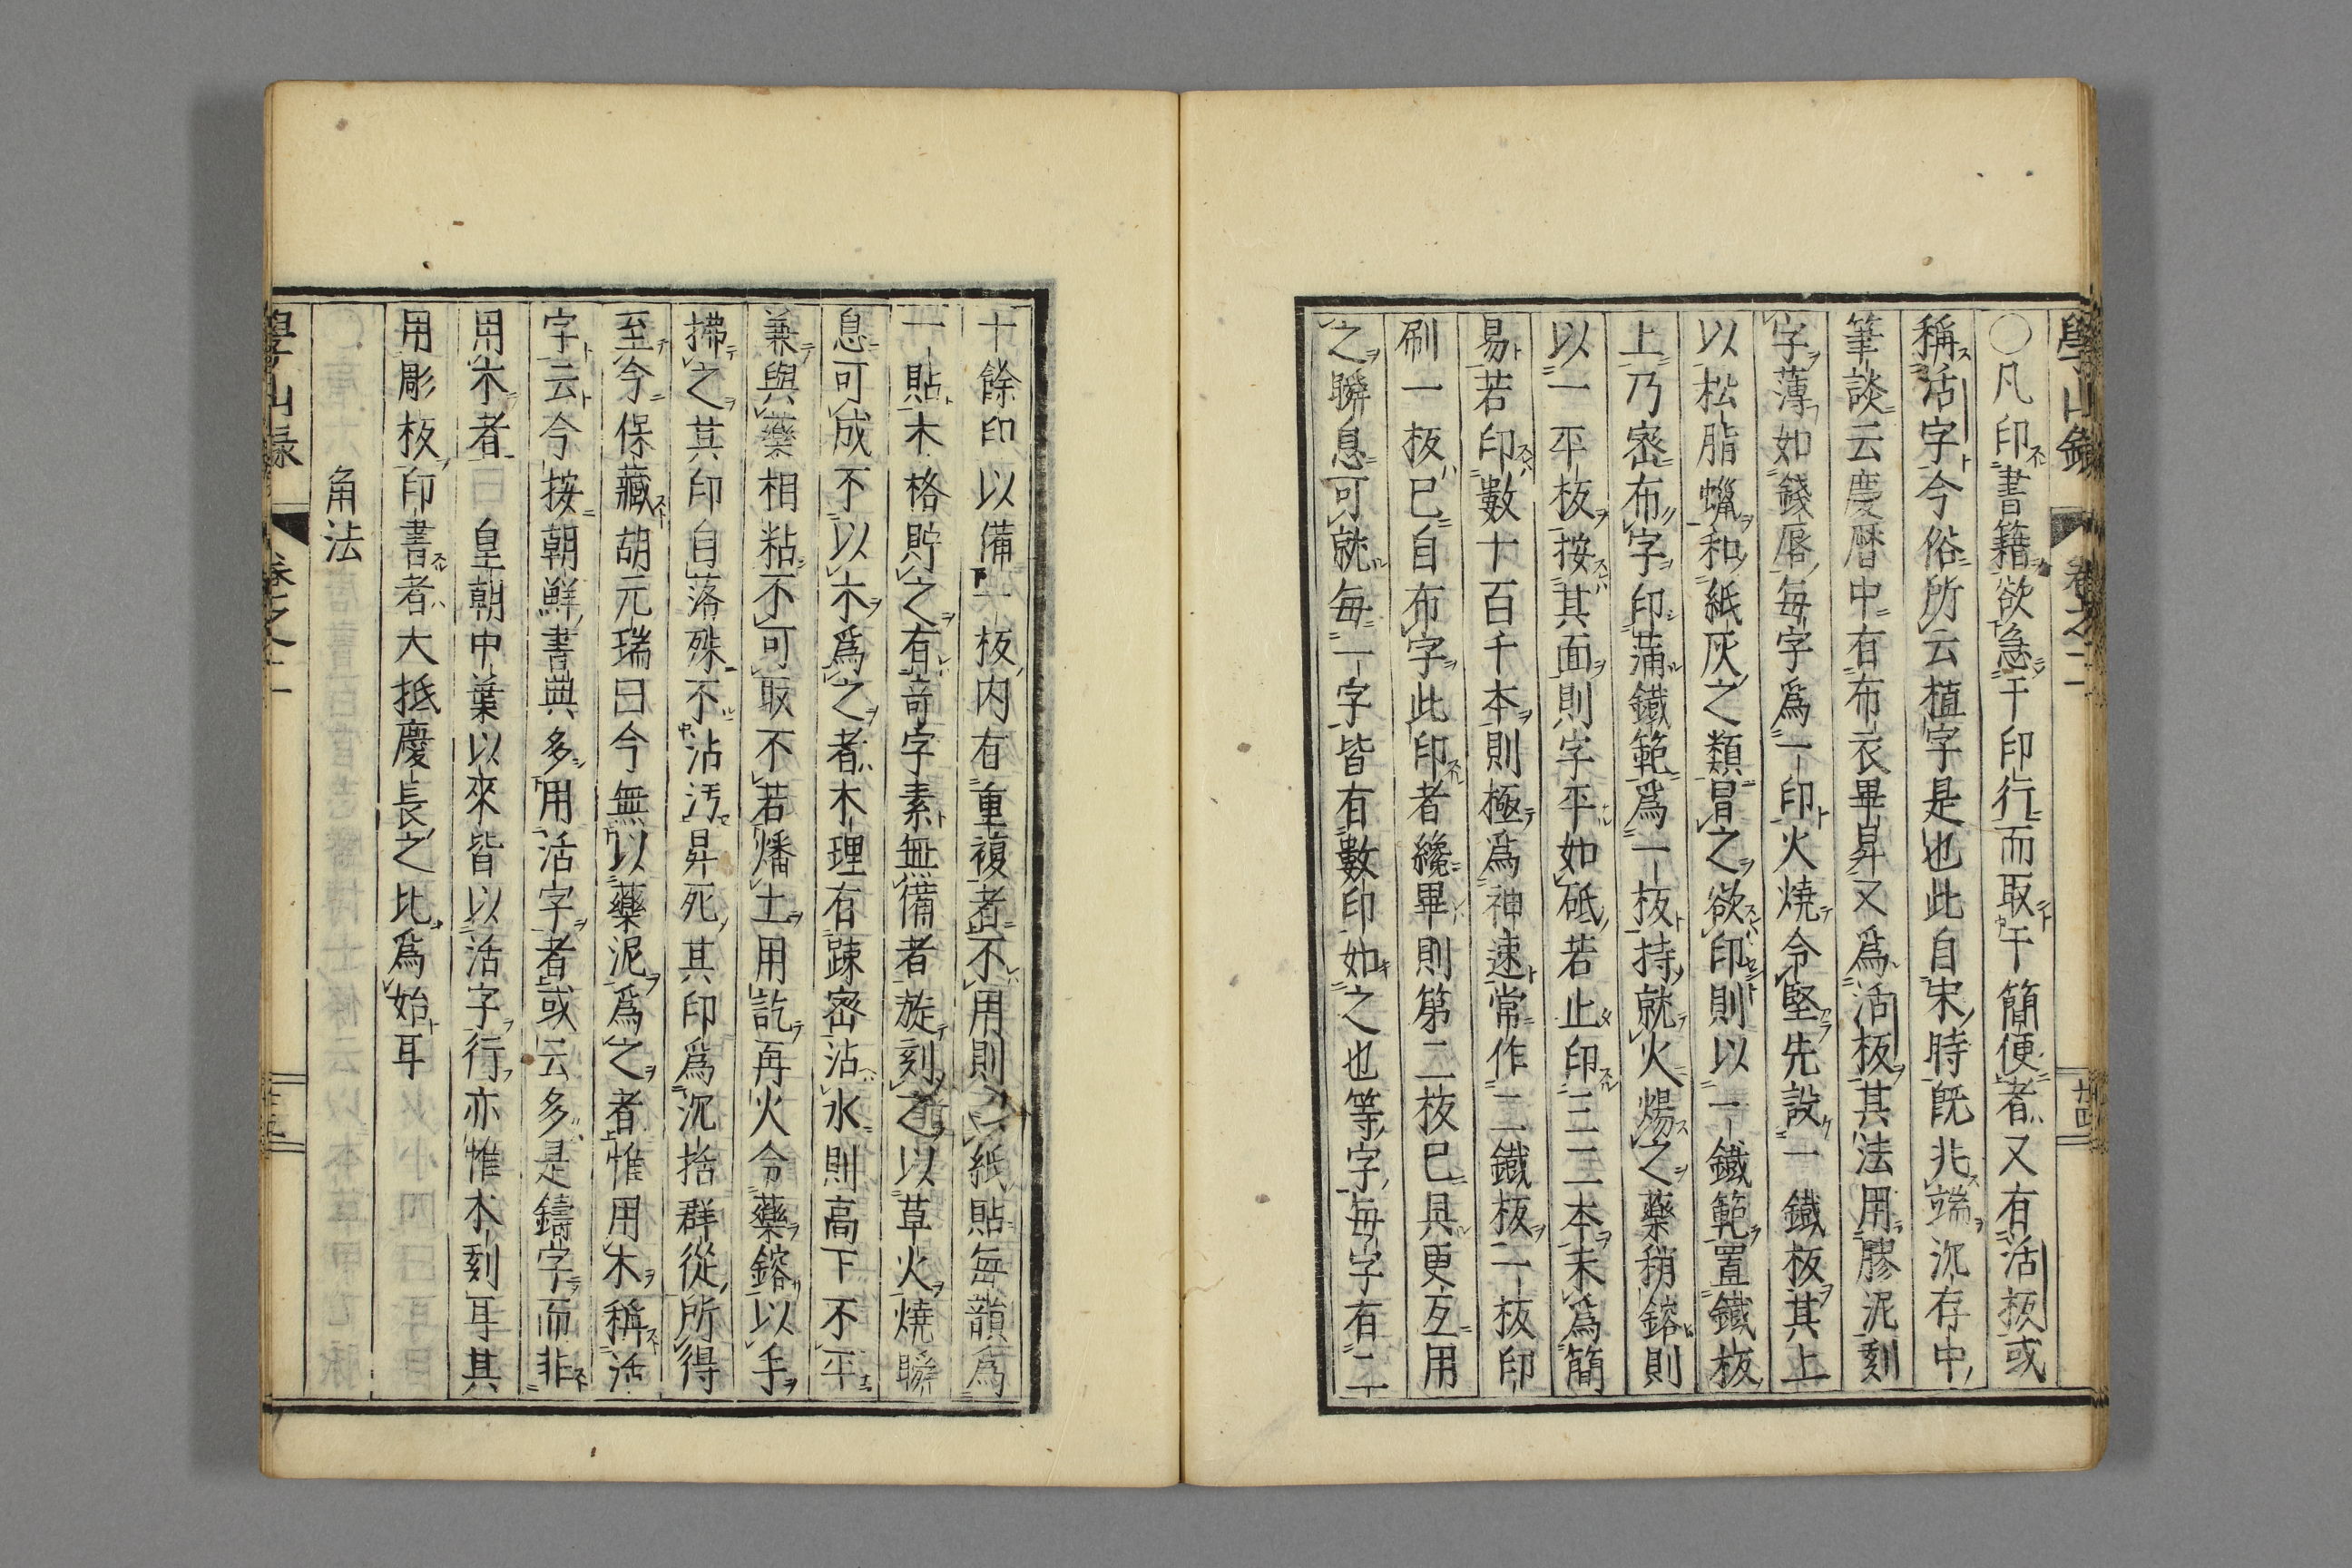 學山錄 卷之二 廿四
〇凡印書籍欲急于印行而取于簡便者又有活板或
稱活字今俗所云植字是也此自宋時既兆端沉存中
筆談云慶暦中有布衣畢昇又爲活板其法用膠泥刻
字薄如錢唇每字爲一印火燒令堅先設一鐵板其上
以松脂蠟和紙灰之類冒之欲印則以一鐵範置鐵板
上乃密布字印滿鐵範爲一板持就火煬之藥稍鎔則
以一平板按其面則字平如砥若止印三二本未爲簡
易若印數十百千本則極爲神速常作二鐵板一板印
刷一板已自布字此印者纔畢則第二板已具更互用
之瞬息可就每一字皆有數印如之也等字每字有二
十餘印以備一板内有重複者不用則以紙貼每韻爲
一貼木格貯之有竒字素無備者旋刻之以草火燒瞬
息可成不以木爲之者木理有踈密沾水則高下不平
兼與藥相粘不可取不若燔土用訖再火令藥鎔以手
拂之其印自落殊不沾汚昇死其印爲沉括群從所得
至今保藏胡元瑞曰今無以藥泥爲之者惟用木稱活
字云今按朝鮮書典多用活字者或云多是鑄字而非
用木者 皇朝中葉以來皆以活字行亦惟木刻耳其
用彫板印書者大抵慶長之比爲始耳
角法
學山録 卷之二